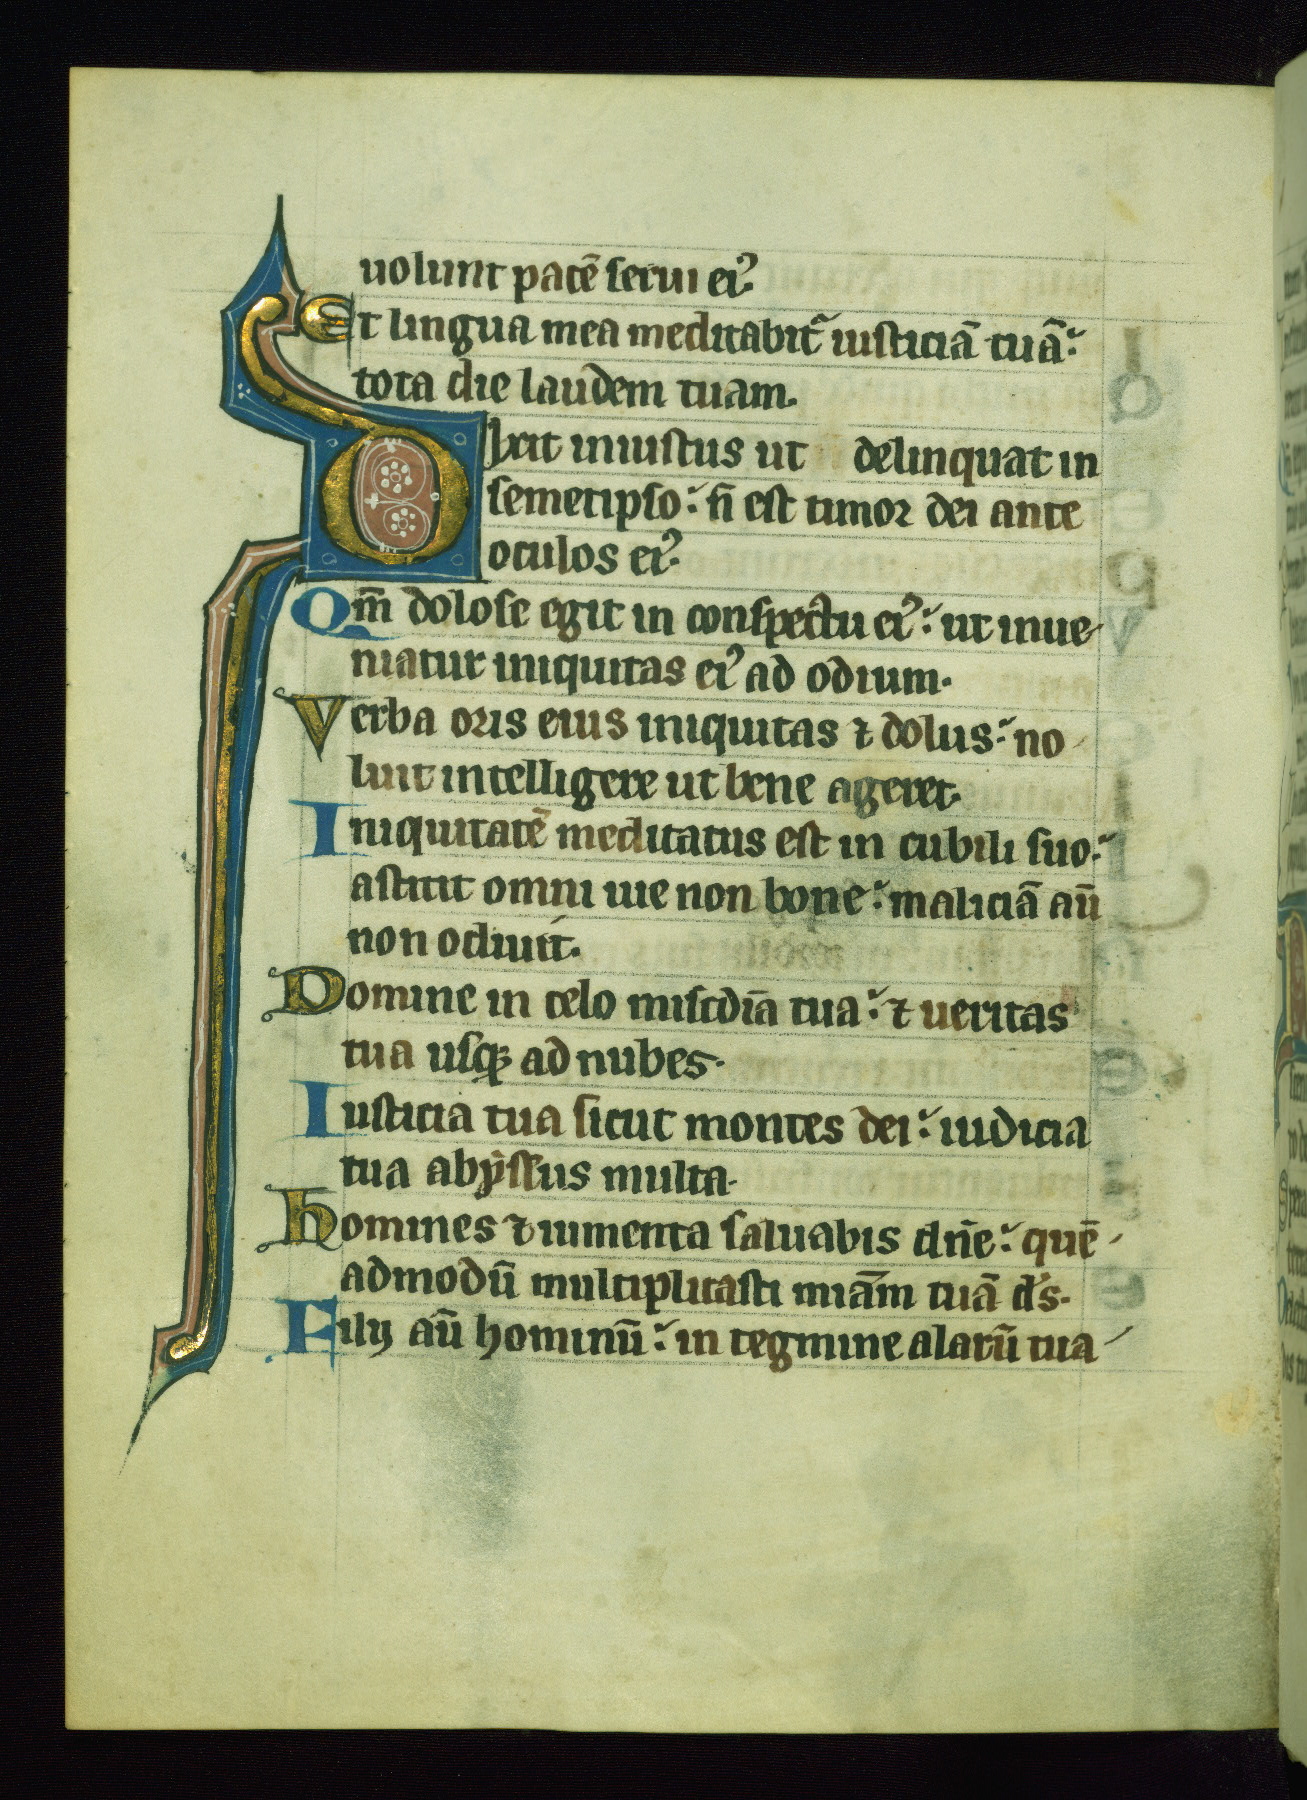 uolunt pacē serui ei⁹.
Et lingua mea meditabit᷑ iusticiā tuā:
tota die laudem tuam.
Dixit iniustus ut delinquat in
semetipso: n̄ est timor dei ante
oculos ei⁹.
Qm̄ dolose egit in conspectu ei⁹: ut inue-
niatur iniquitas ei⁹ ad odium.
Verba oris eius iniquitas ⁊ dolus: no-
luit intelligere ut bene ageret.
Iniquitatē meditatus est in cubili suo:
astitit omni uie non bone: maliciā aū
non odiuit.
Domine in celo mis̄cdiā tua: ⁊ ueritas
tua usqꝫ ad nubes.
Iusticia tua sicut montes dei: iudicia
tua abyssus multa.
Homines ⁊ iumenta saluabis dn̄e: quē-
admodū multiplicasti miā̄m tuā d̄s.
Filij aū hominū: in tegmine alarū tua-